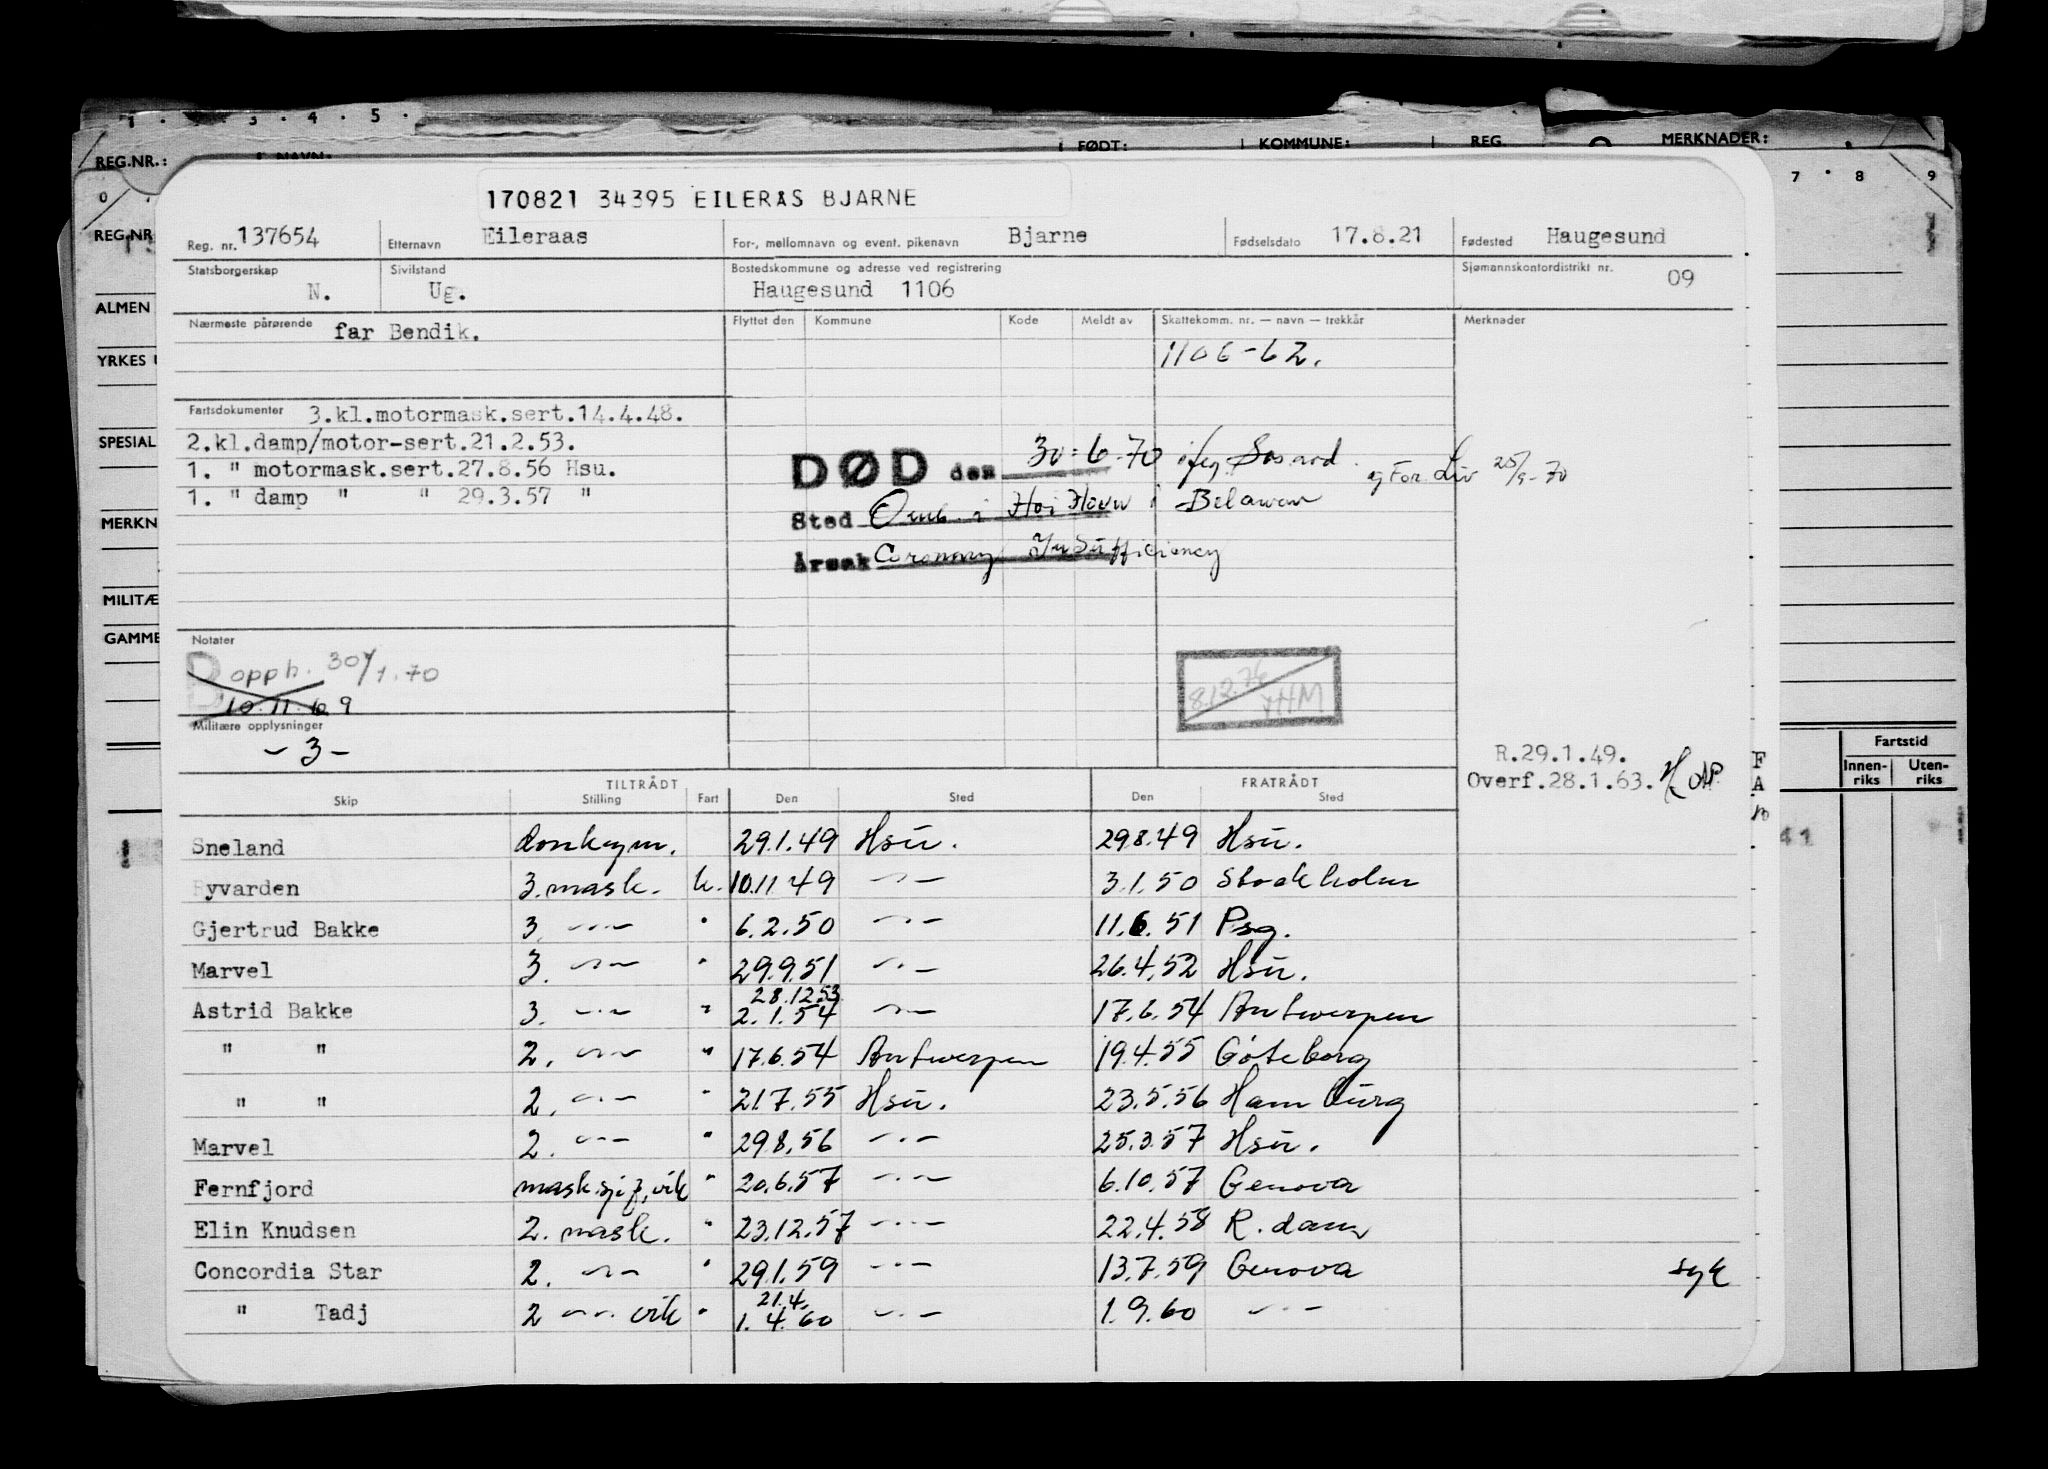 1 . . 3 . 4 . 5 .
REG.NR.: NAVN: FØDT: KOMMUNE: REG. MERKNADER:
0 7 . 8 9
REG.NR
ALMEN
YRKES
SPESIAL
MERKN
MILITÆ
GAMME
170821 34395 EILERÅS BJARNE
Reg. nr. 137654 Etternavn Eileraas For-, mellomnavn og event. pikenavn Bjarne Fødselsdato 17.8.21 Fødested Haugesund
Statsborgerskap N. Sivilstand Ug. Bostedskommune og adresse ved registrering Haugesund 1106 Sjømannskontordistrikt nr. 09
Nærmeste pårørende far Bendik. Flyttet den Kommune Kode Meldt av Skattekomm. nr. — navn — trekkår Merknader
1106-62.
Fartsdokumenter 3.kl.motormask.sert.14.4.48.
2.kl.damp/motor-sert.21.2.53.
1. " motormask.sert.27.8.56 Hsu.
1. " damp " " 29.3.57 "
DØD den 30-6-70 og For. Liv 25/9-70
Sted Omb. i Hoi Houw i Belawan
Årsak Coronary Insufficiency
Notater
B opph. 30/1.70
10.11.69
Militære opplysninger
- 3 -
8.12.76 YHM
R.29.1.49.
Overf.28.1.63.
F
A
Fartstid
Innen-riks Uten-riks
41
TILTRÅDT FRATRÅDT
Skip Stilling Fart Den Sted Den Sted
Sneland donkeym. 29.1.49 Hsu. 29.8.49 Hsu.
Ryvarden 3. mask. k. 10.11.49 -"- 3.1.50 Stockholm
Gjertrud Bakke 3. -"- " 6.2.50 -"- 11.6.51 Psg.
Marvel 3. -"- " 29.9.51 -"- 26.4.52 Hsu.
28.12.53
Astrid Bakke 3. -"- " 2.1.54 -"- 17.6.54 Antwerpen
" " 2. -"- " 17.6.54 Antwerpen 19.4.55 Göteborg
" " 2. -"- " 21.7.55 Hsu. 23.5.56 Hamburg
Marvel 2. -"- " 29.8.56 -"- 25.3.57 Hsu.
Fernfjord mask.sjef, vik " 20.6.57 -"- 6.10.57 Genova
Elin Knudsen 2. mask. " 23.12.57 -"- 22.4.58 R.dam
Concordia Star 2. -"- " 29.1.59 -"- 13.7.59 Genova syk
21.4.
" Tadj 2 -"- vik " 1.4.60 -"- 1.9.60 -"-